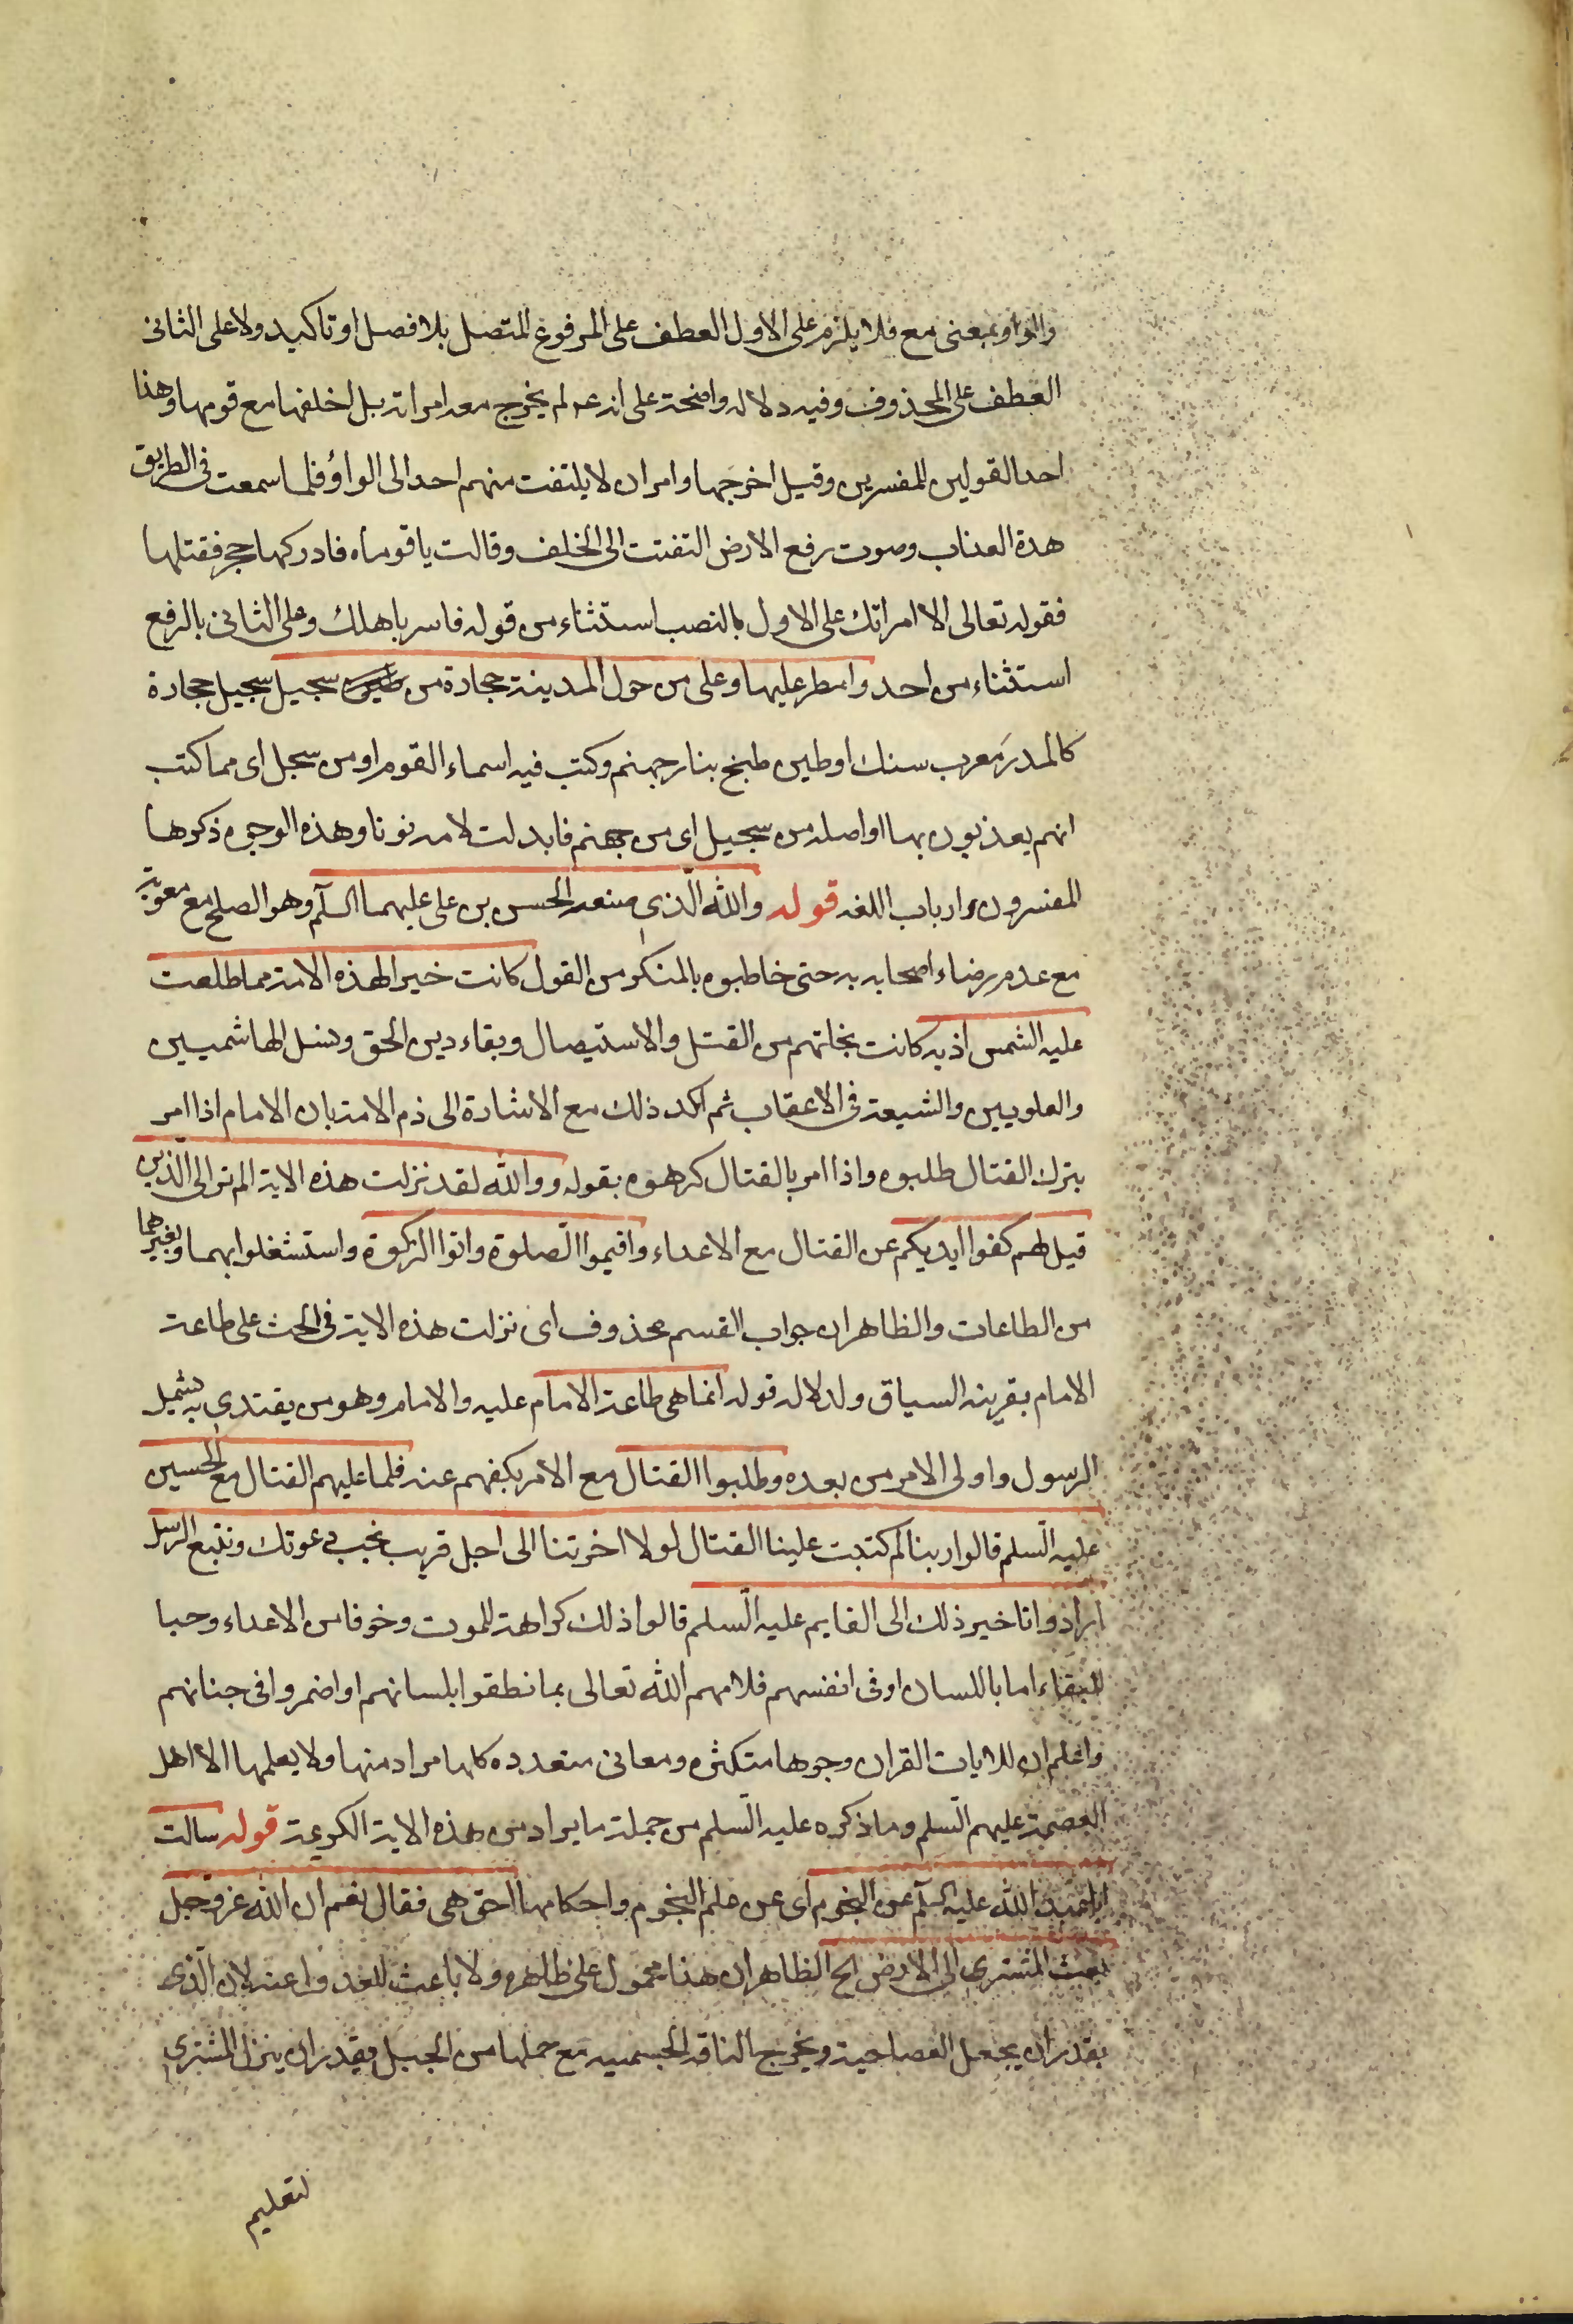 والواو بمعنى مع فلا يلزم على الاول العطف على المرفوع المتصل بلا فصل او تاكيد ولا على الثانى
العطف على المحذوف وفيه دلاله واضحة على انه عم لم يخرج معه امراته بل اخلفها مع قومها وهذا
احد القولين للمفسرين وقيل اخرجها وامر ان لا يلتفت منهم احد الى الوراؤ فلما سمعت فى الطريق
هدة العذاب وصوت رفع الارض التفتت الى الخلف وقالت يا قوماه فادركها حجر فقتلها
فقوله تعالى الا امراتك على الاول بالنصب استثناء من قوله فاسر باهلك وعلى الثانى بالرفع
استثناء من احد وامطر عليها وعلى من حول المدينة حجارة من سجيل سجيل حجارة
كالمدر معرب سنك او طين طبخ بنار جهنم وكتب فيه اسماء القوم او من سجل اى مما كتب
انهم يعذبون بها او اصله من سجيل اى من جهنم فابدلت لامه نونا وهذه الوجوه ذكرها
المفسرون وارباب اللغه قوله والله الّذى صنعه الحسن بن على عليهما السلم وهو الصلح مع معوية
مع عدم رضاء اصحابه به حتى خاطبوه بالمنكر من القول كانت خيرا لهذه الامة مما طلعت
عليه الشمس اذ به كانت نجاتهم من القتل والاستيصال وبقاء دين الحق ونسل الهاشميين
والعلويين والشيعة فى الاعقاب ثم اكد ذلك مع الاشارة الى ذم الامة بان الامام اذا امر
بترك القتال طلبوه واذا امر بالقتال كرهوه بقوله ووالله لقد نزلت هذه الاية الم تر الى الّذين
قيل لهم كفوا ايديكم عن القتال مع الاعداء واقيموا الصّلوة واتوا الزكوة واستشغلوا بهما وبغيرهما
من الطاعات والظاهر ان جواب القسم محذوف اى نزلت هذه الاية فى الحث على طاعة
الامام بقرينه السياق ولدلاله قوله انما هى طاعة الامام عليه والامام وهو من يقتدى به يشمل
الرسول واولى الامر من بعده وطلبوا القتال مع الامر بكفهم عنه فلما عليهم القتال مع الحسين
عليه السّلم قالوا ربنا لم كتبت علينا القتال لولا اخرتنا الى اجل قريب نجب دعوتك ونتبع الرسل
ارادوا تاخير ذلك الى القايم عليه السّلم قالوا ذلك كراهة للموت وخوفا من الاعداء وحبا
للبقاء اما باللسان او فى انفسهم فلامهم الله تعالى بما نطقوا بلسانهم او اضمروا فى جنانهم
واعلم ان للايات القران وجوها متكثره ومعانى متعدده كلها مراد منها ولا يعلمها الا اهل
العصمة عليهم السّلم وما ذكره عليه السّلم من جملة ما يراد من هذه الاية الكريمة قوله سالت
ابا عبد الله عليه السلم عن النجوم اى عن علم النجوم واحكامها احق هى فقال نعم ان الله عز وجل
بعث المشترى الى الارض الخ الظاهر ان هذا محمول على ظاهره ولا باعث للعدول عنه لان الّذى
يقدر ان يجعل العصا حية ويخرج الناقه الجسميه مع حملها من الجبل يقدر ان ينزل المشترى
لتعليم